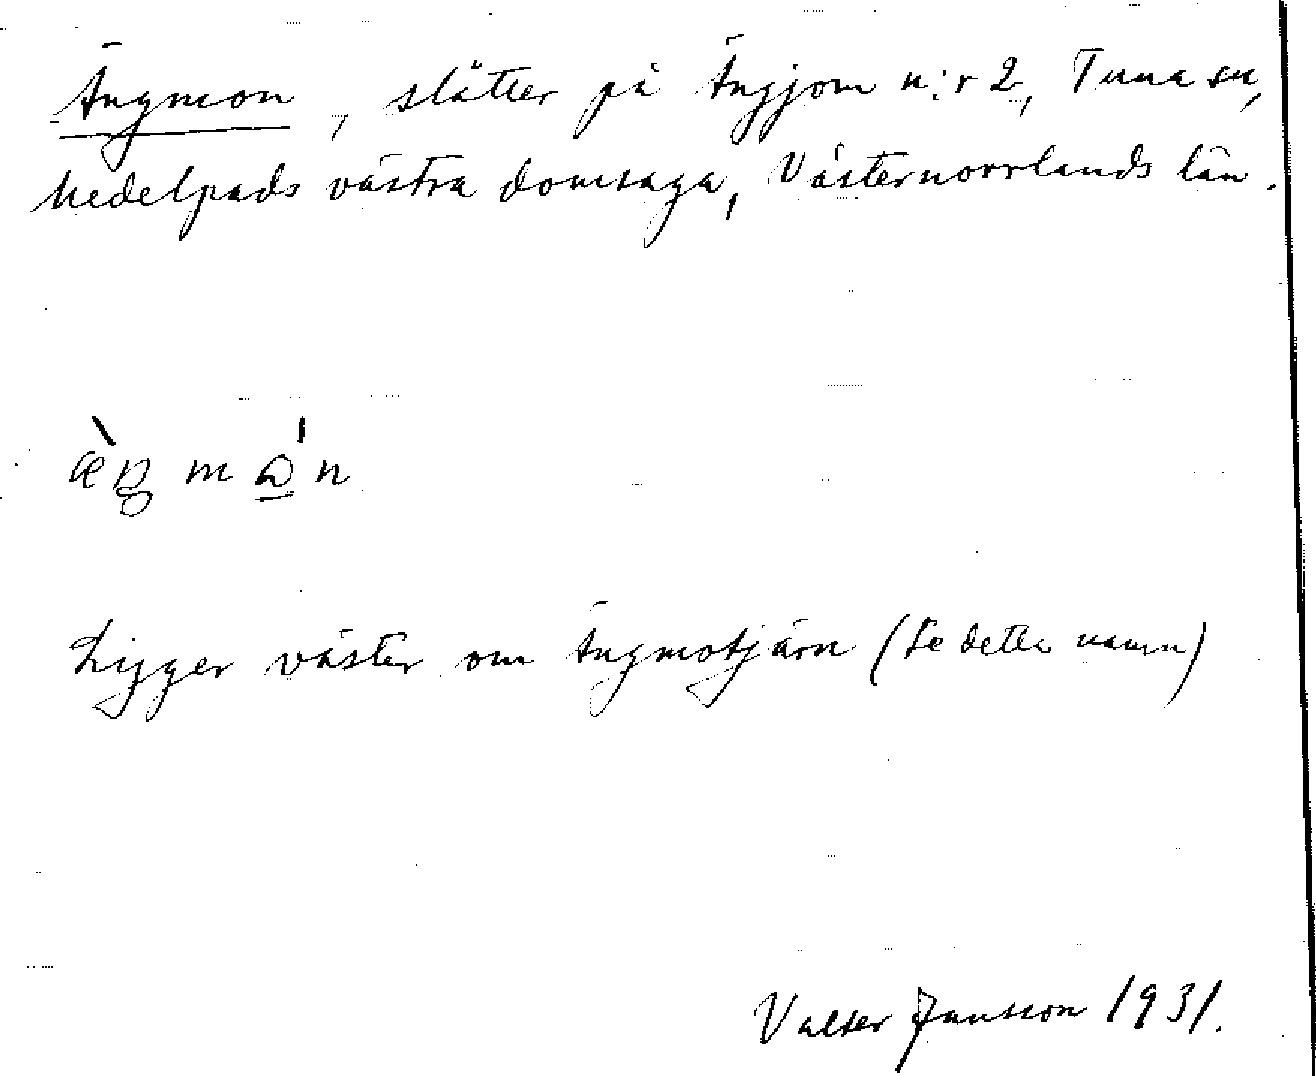 Ängmon, slåtter på Ängjom n:r 2, Tuna sn,
Medelpads västra domsaga, Västernorrlands län.
æ̀ŋ mɷ̲́n
Ligger väster om Ängmotjärn (se detta namn)
Valter Jansson 1931.